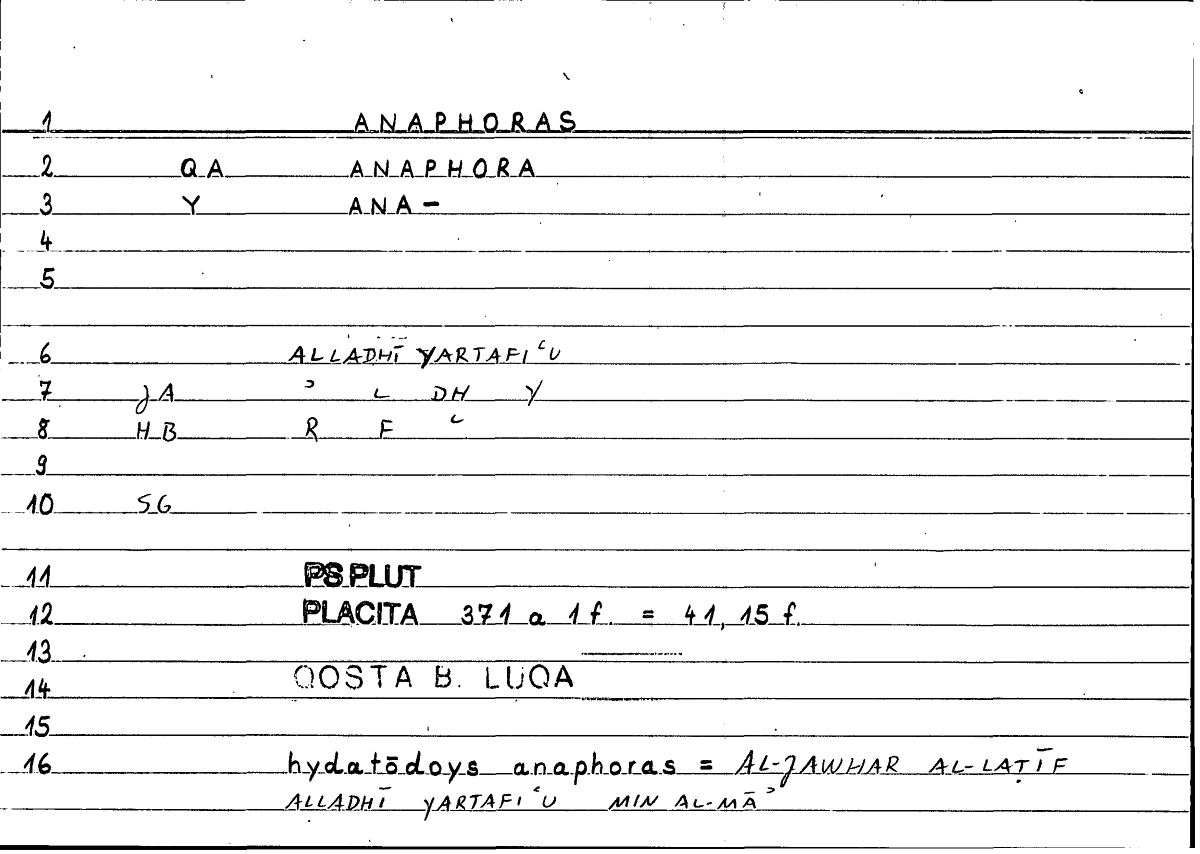 1 ANAPHORAS
2 QA ANAPHORA
3 Y ANA-
4
5
6 ALLADHĪ YARTAFIʿU
7 JA ʾ L DH Y
8 HB R F ʿ
9
10 SG
11 PS PLUT
12 PLACITA 371 a 1 f. = 41, 15 f.
13
14 QOSTA B. LUQA
15
16 hydatōdoys anaphoras = AL-JAWHAR AL-LAṬĪF
ALLADHĪ YARTAFIʿU MIN AL-MĀʾ